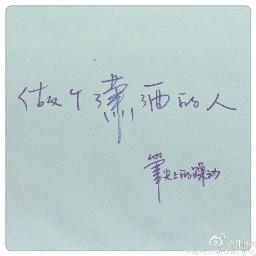 做个潇洒的人
笔尖上的躁动